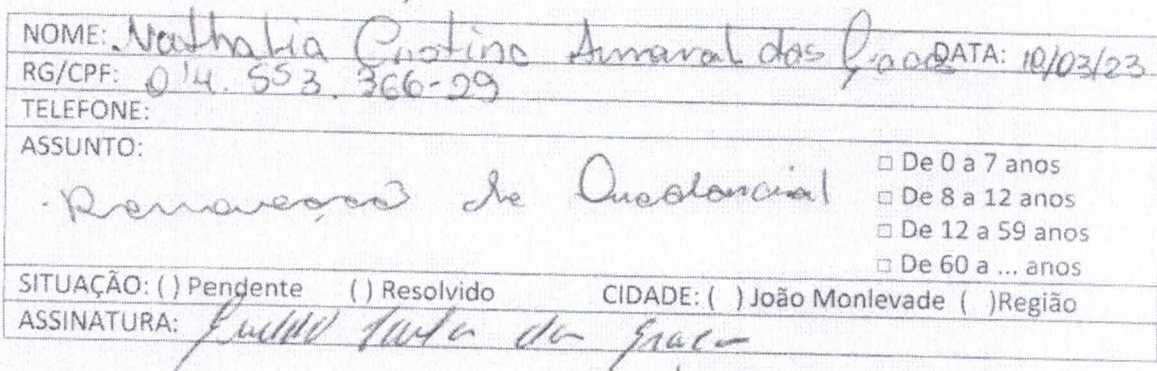 NOME: Nathalia Cristina Amaral das Graças DATA: 10/03/23
RG/CPF: 014.553.366-29
TELEFONE:
ASSUNTO:
Renovação de Credencial
□ De 0 a 7 anos
□ De 8 a 12 anos
□ De 12 a 59 anos
□ De 60 a ... anos
SITUAÇÃO: ( ) Pendente ( ) Resolvido CIDADE: ( ) João Monlevade ( )Região
ASSINATURA: da Graça